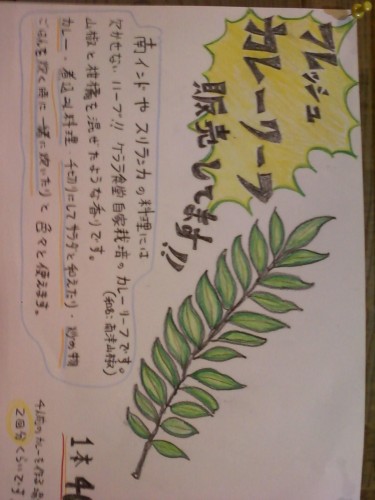 フレッシュ
カレーリーフ
販売してます!!
南インドやスリランカの料理には
欠かせないハーブ!! ケララ食堂自家栽培のカレーリーフです。
(和名:南洋山椒)
山椒と柑橘を混ぜたような香りです。
カレー・煮込み料理 千切りにしてサラダと和えたり・炒め物
ごはんを炊く時に一緒に炊いたりと色々と使えます。
1本 4
4人前のカレーを作る
2回分くらいです